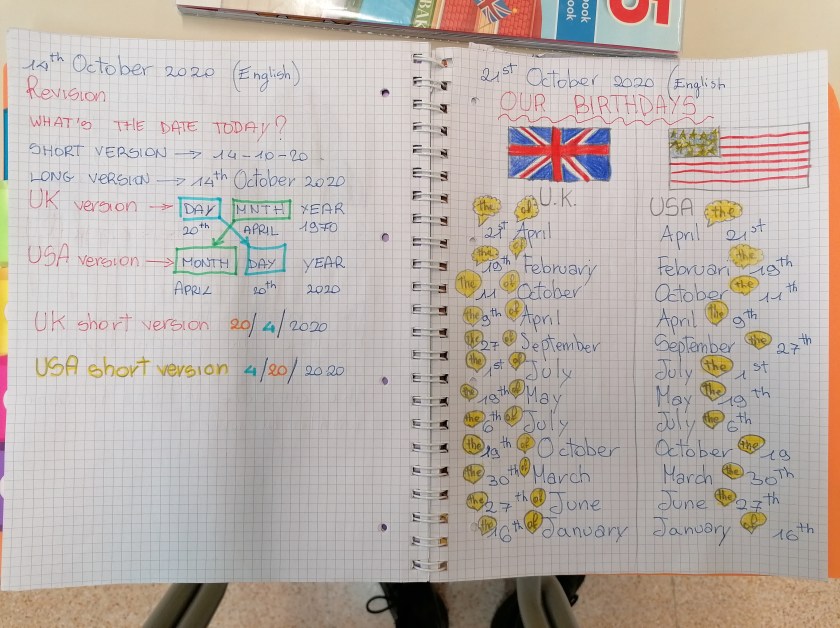 14th October 2020 (English)
Revision
WHAT'S THE DATE TODAY?
SHORT VERSION → 14-10-20
LONG VERSION → 14th October 2020
UK version → DAY MNTH YEAR
20th APRIL 1970
USA version → MONTH DAY YEAR
APRIL 20th 2020
UK short version 20/4/2020
USA short version 4/20/2020
book
book
5
21st October 2020 (English
OUR BIRTHDAYS
U.K.
the of
21st April
the of
19th February
the 11 of October
the 9th of April
the 27 of September
the 1st of July
the 19th of May
the 6th of July
the 19th of October
the 30th of March
the 27th of June
the 16th of January
USA the
April 21st
the
Februari 19th
October the 11th
April the 9th
September the 27th
July the 1st
May the 19th
July the 6th
October the 19
March the 30Th
June the 27th
January of 16th